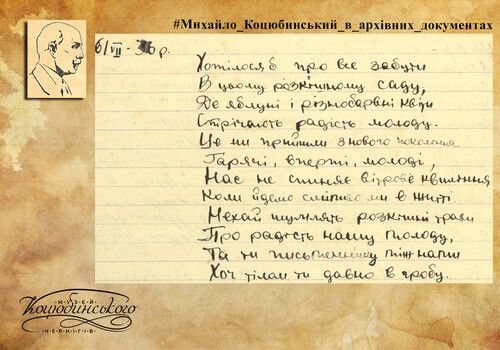 #Михайло_Коцюбинський_в_архівних_документах
6/VII-36р.
Хотілося б про все забути
В цьому розкішному саду,
Де яблуні і різнобарвні квіти
Стрічають радість молоду.
Це ми прийшли з нового покоління
Гарячі, вперті, молоді,
Нас не спиняє вітрове квиління
Коли йдемо сміливо ми в житті.
Нехай шумлять розкішні трави
Про радість нашу молоду,
Та ти письменнику між нами
Хоч тілом ти давно в гробу.
МУЗЕЙ
Коцюбинського
ЧЕРНІГІВ